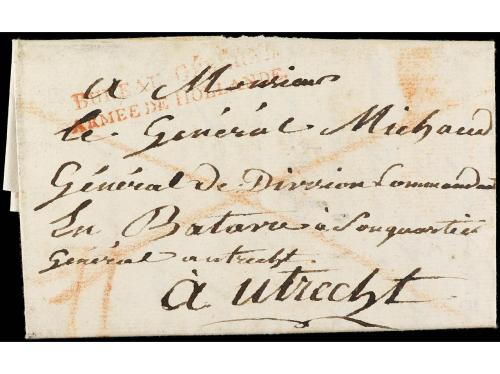 BUREAU GÉNÉRAL
ARMÉE DE HOLLANDE.
a Monsieur
le Général Michaud
Général de Division Commandant
En Batavie à Son quartier
Général a utrecht.
à utrecht